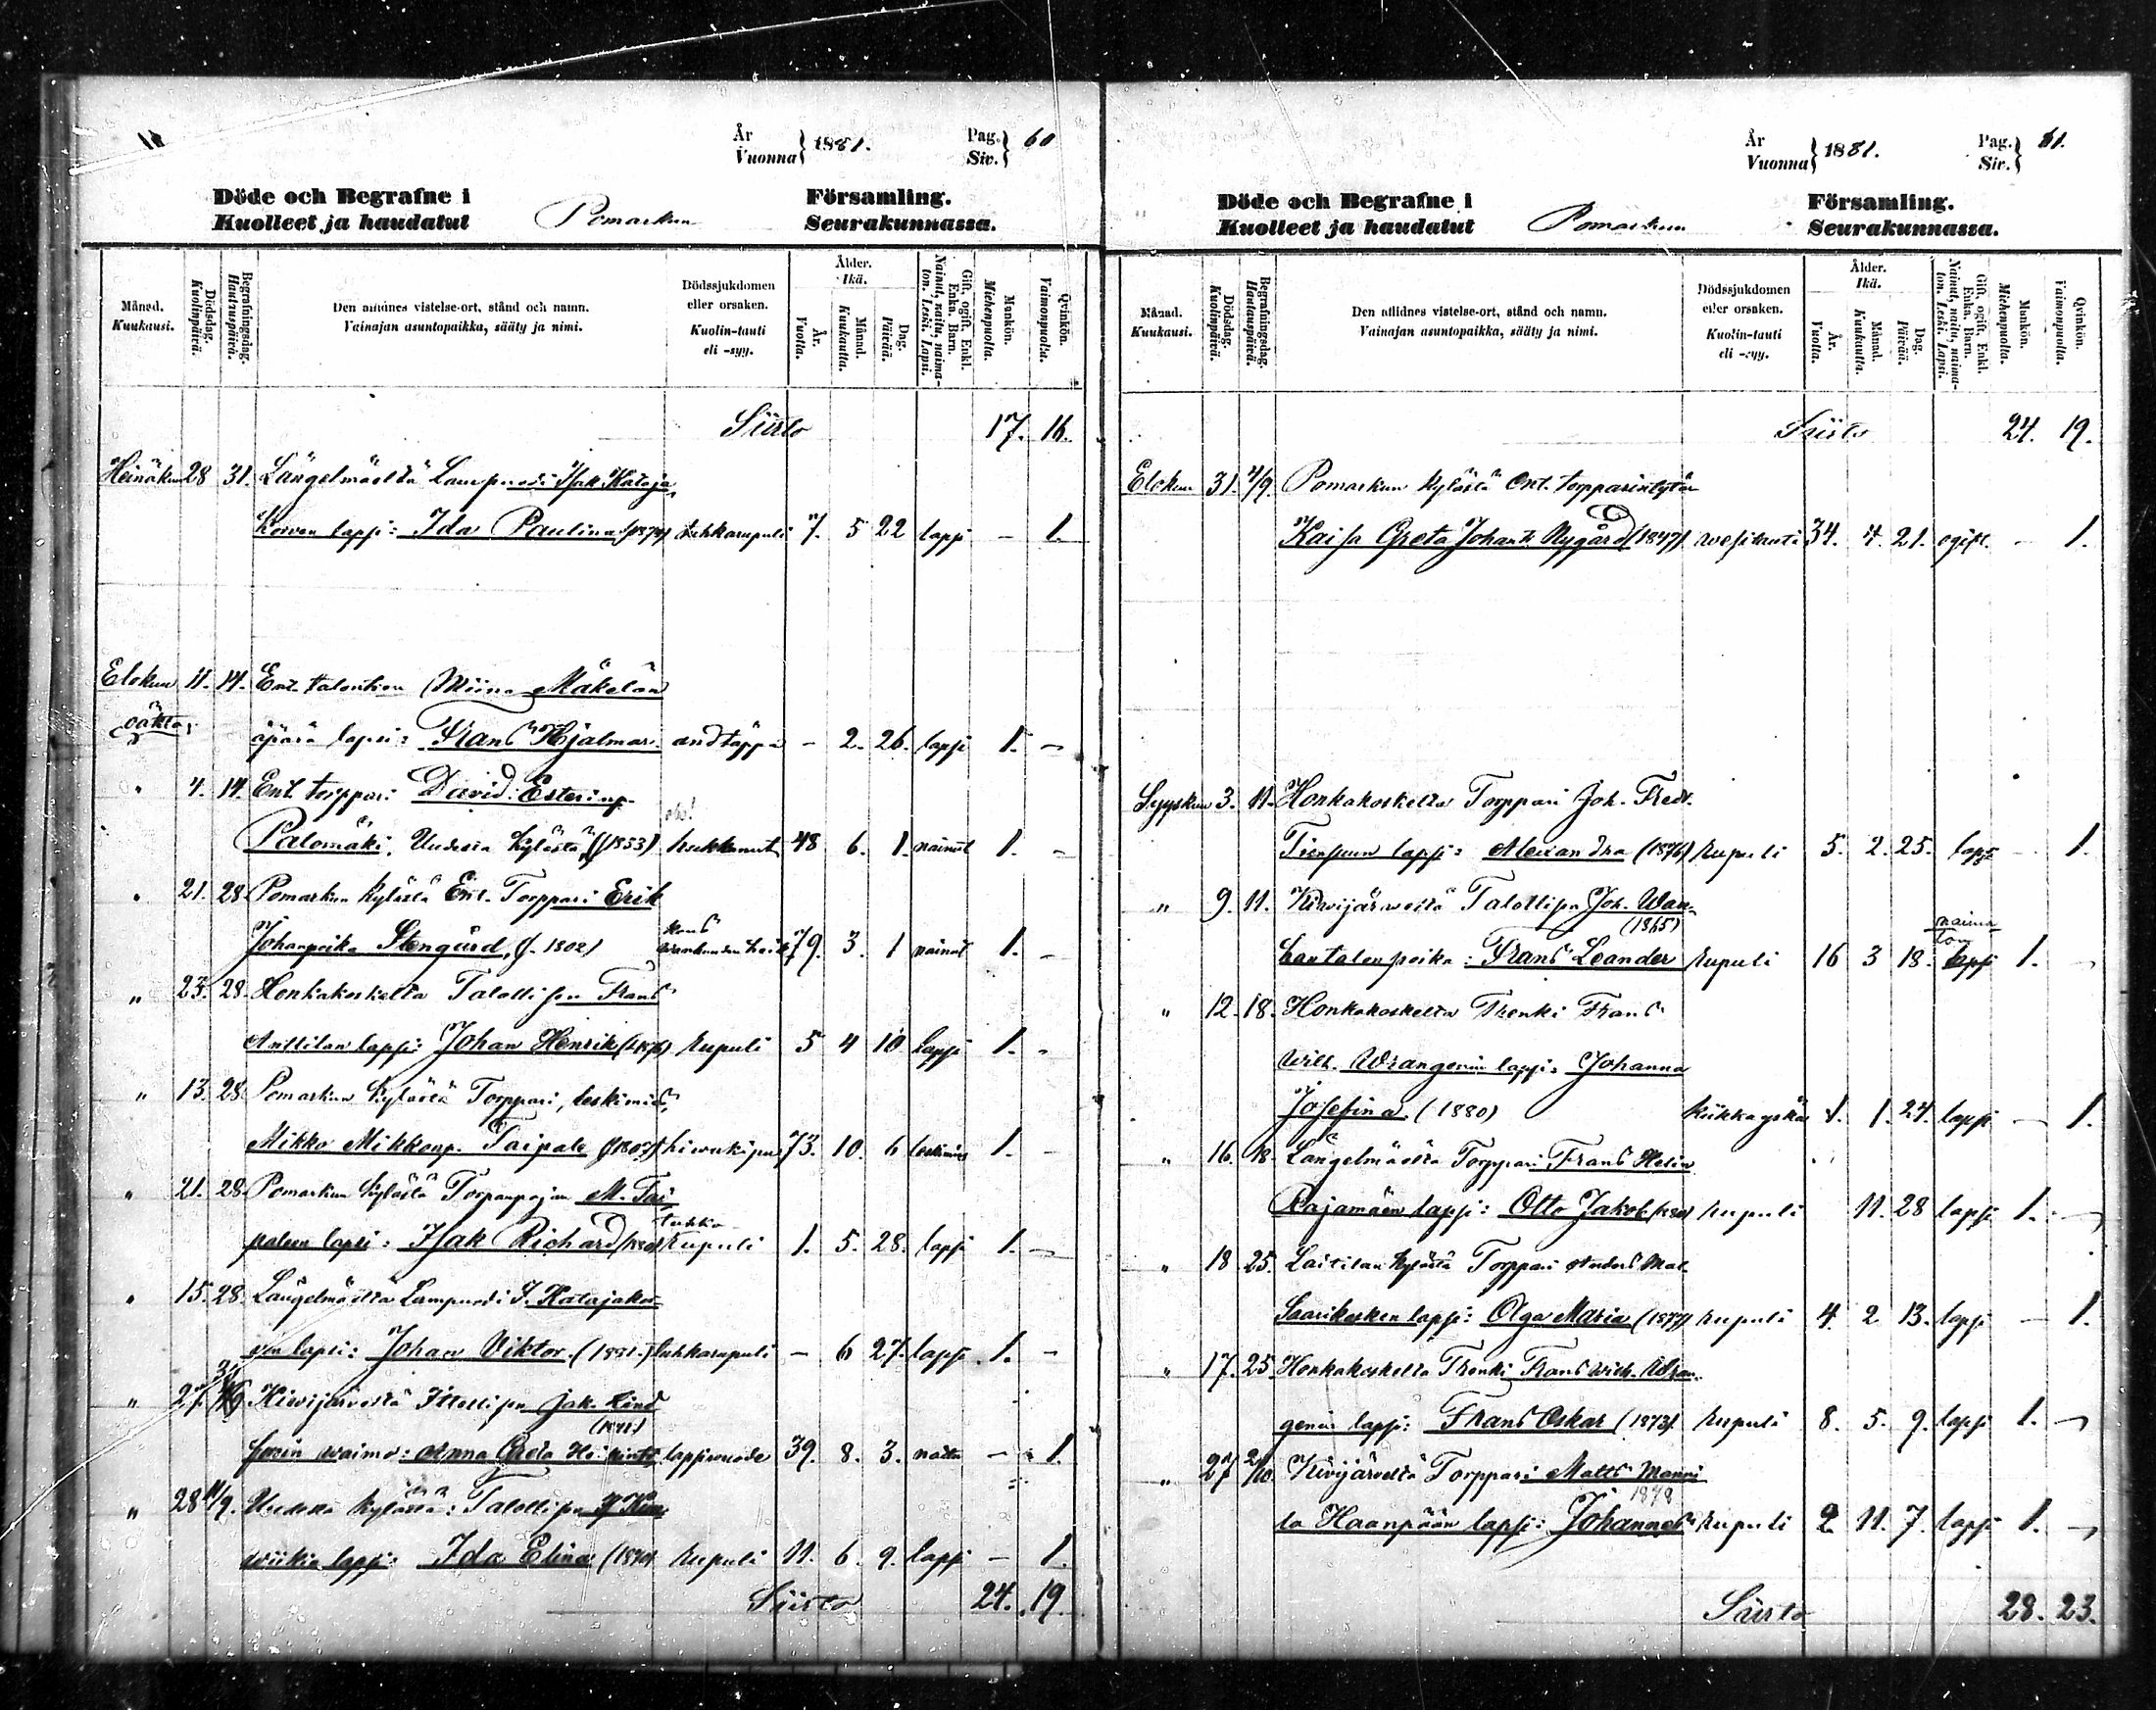 År
Vuonna } 1881.
Pag.
Siv. } 60
Döde och Begrafne i Församling.
Kuolleet ja haudatut Pomarkun Seurakunnassa.
Månad.
Kuukausi.
Dödsdag.
Kuolinpäivä.
Begrafningsdag.
Hautauspäivä.
Den aflidnes vistelse-ort, stånd och namn.
Vainajan asuntopaikka, sääty ja nimi.
Dödssjukdomen
eller orsaken.
Kuolin-tauti
eli -syy.
Ålder.
Ikä.
År.
Vuotta.
Månad.
Kuukautta.
Dag.
Päivää.
Gift, ogift, Enkl.
Enka. Barn.
Nainut, naitu, naima-
ton. Leski. Lapsi.
Mankön.
Miehenpuolta.
Qvinkön.
Vaimonpuolta.
Siirto 17. 16.
Heinäkun 28 31. Längelmäeltä Lampuodi Isak Kataja
Korven lapsi: Ida Paulina (1874) tuhkarupuli 7. 5 22 lapsi - 1.
Elokun 11. 14. Ent. talontien Miina Mäkelän
äpärä lapsi: Frans Hjalmar. andtäppa - 2. 26. lapsi 1. -
" 4. 14. Ent torppari David Esterinp.
Palomäki, Uudesta kylästä (1853) hukkunut 48 6. 1. nainut 1. -
" 21. 28 Pomarkun kylästä Ent. Torppari Erik
Johanpoika Stengård, (f. 1802) 79. 3. 1 nainut 1. -
" 23. 28. Honkakoskelta Talollisen Frans
Anttilan lapsi: Johan Henrik (1876) rupuli 5 4 10 lapsi 1. -
" 13. 28 Pomarkun kylästä Torppari, leskimies,
Mikko Mikkonp. Taipale (1807) 73. 10. 6 leskimies 1. -
" 21. 28 Pomarkun kylästä Torpanpojan M. Tai
tuhka-
paleen lapsi: Isak Richard (1880) rupuli 1. 5. 28. lapsi 1. -
" 15. 28. Längelmäeltä Lampuodi I. Katajakor-
ven lapsi: Johan Viktor. (1881.) tuhkarupuli - 6 27. lapsi 1. -
" 27. Kiwijärveltä Itsellisen Jak. Lind
(1841)
forsin waimo: Anna Greta lapsivuode 39. 8. 3. naitu - 1.
" 28 11/9. Uudesta kylästä: Talollisen
wiikin lapsi: Ida Elina (1870) rupuli 11. 6. 9. lapsi - 1.
Siirto 24. 19.
År
Vuonna } 1881.
Pag.
Siv. } 61.
Döde och Begrafne i Församling.
Kuolleet ja haudatut Pomarkun Seurakunnassa.
Månad.
Kuukausi.
Dödsdag.
Kuolinpäivä.
Begrafningsdag.
Hautauspäivä.
Den aflidnes vistelse-ort, stånd och namn.
Vainajan asuntopaikka, sääty ja nimi.
Dödssjukdomen
eller orsaken.
Kuolin-tauti
eli -syy.
Ålder.
Ikä.
År.
Vuotta.
Månad.
Kuukautta.
Dag.
Päivää.
Gift, ogift, Enkl.
Enka. Barn.
Nainut, naitu, naima-
ton. Leski. Lapsi.
Mankön.
Miehenpuolta.
Qvinkön.
Vaimonpuolta.
Siirto 24. 19.
Elokun 31. 4/9. Pomarkun kylästä Ent. torpparintytär
Kaisa Greta Johan Nygård (1847) wesitauti 34. 4. 21. ogift. - 1.
Syyskun 3. 11. Honkakoskelta Torppari Joh. Fredr.
lapsi: Alexandra (1876) rupuli 5. 2. 25. lapsi - 1.
" 9. 11. Kiwijärweltä Talollisen Joh. Wan-
(1865) naima
ton
hantalon poika: Frans Leander rupuli 16 3 18. lapsi 1. -
" 12. 18. Honkakoskelta Trenki Frans
Wilh. Wrangenin lapsi: Johanna
Josefina. (1880) hiikkayskä 1. 1. 24. lapsi - 1.
" 16. 18. Längelmäeltä Torppari Frans Helin
Rajamäen lapsi: Otto Jakob (1880) rupuli 11. 28 lapsi 1. -
" 18 25. Laitilan kylästä Torppari Anders Mat.
Saarikosken lapsi: Olga Maria (1877) rupuli 4. 2 13. lapsi - 1.
" 17. 25 Honkakoskelta Trenki Frans Wilh. Wran-
genin lapsi: Frans Oskar (1873) rupuli 8. 5. 9. lapsi 1. -
" 27 2/10 Kivijärveltä Torppari Matts Manni
1878
la Haanpään lapsi: Johannes rupuli 2 11. 7. lapsi 1. -
Siirto 28. 23.